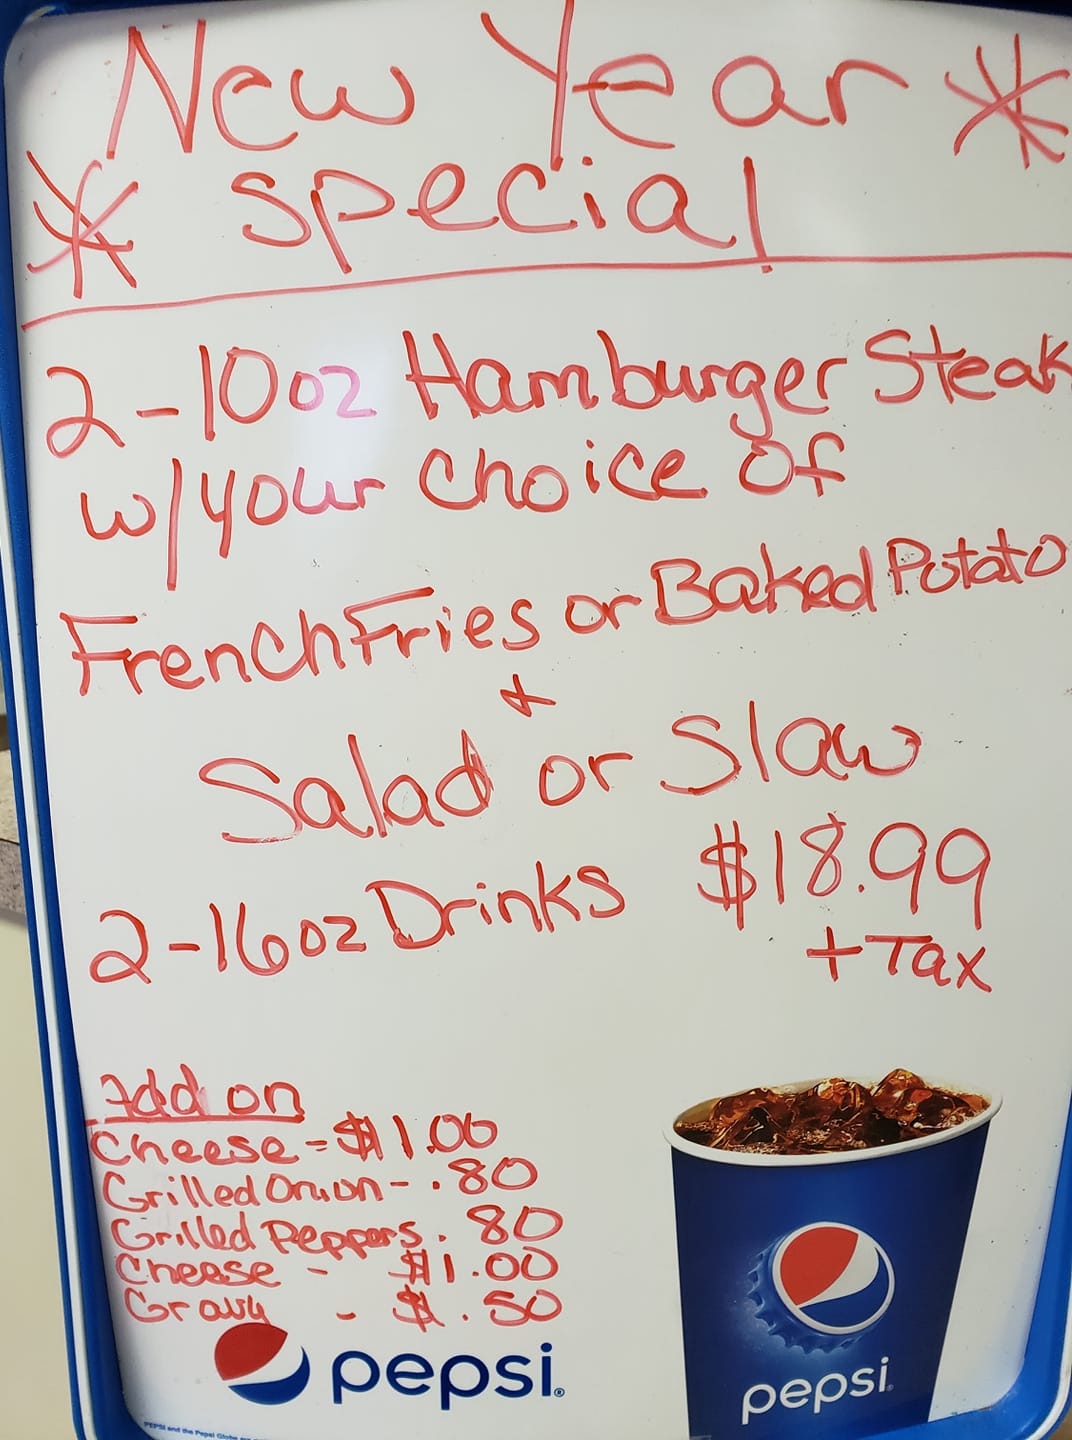 New Year *
* special
2-10oz Hamburger Steak
w/your choice of
French Fries or Baked Potato
&
Salad or Slaw
2-16oz Drinks $18.99
+ Tax
Add on
Cheese - $1.00
Grilled Onion - .80
Grilled Peppers .80
Cheese - $1.00
Gravy - $.50
pepsi.
pepsi.
PEPSI and the Pepsi Globe are